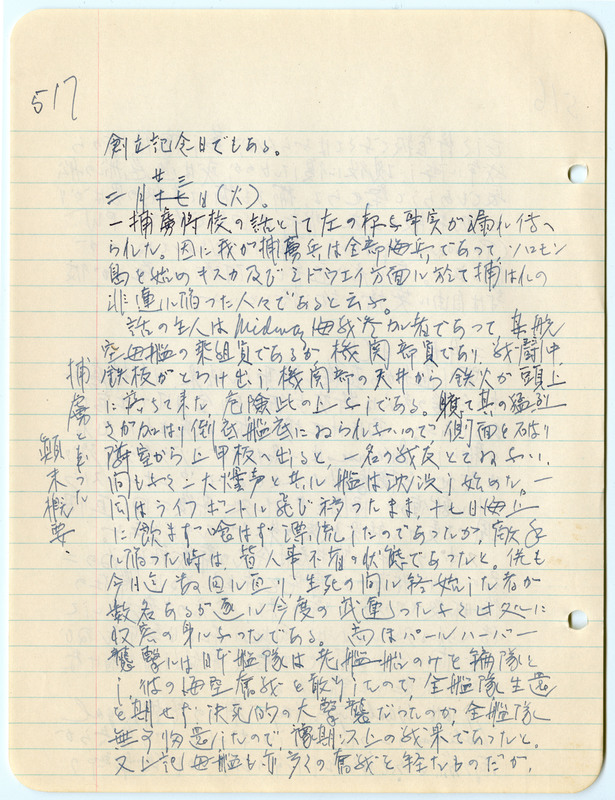 517
創立記念日でもある。
二月廿三日(火)。
一捕虜将校の話として左の様な事実が漏れ伝へ
られた。因に我が捕虜兵は全部海兵であって、ソロモン
島を始めキスカ及びミドウエイ方面に於て捕はれの
非運に陥った人々であると云ふ。
話の主人はMidway海戦参加者であって、某航
空母艦の乗組員であるが機関部員であり、戦闘中
鉄板がとろけ出し、機関部の天井から鉄火が頭上
に落ちて来た。危険此の上なしである。軈て其の猛烈
さが加はり到底艦底にゐられないので、側面を破り
隣室から上甲板へ出ると、一名の戦友とてゐない。
間もなく一大爆声と共に艦は沈没し始めた。一
同はライフボートに飛び移ったまま、十七日海上
に飲まず喰はず漂流したのであったが、敵手
に陥った時は、皆人事不省の状態であったと。併も
今日迄数回に亘り、生死の間に終始した者が
数名あるが遂に今度の武運つたなく
収容の身になったである。尚ほパールハーバー
襲撃には日本艦隊は老艦船のみを編隊と
し、彼の海空奮戦を敢行したので、全艦隊生還
を期せず、決死的の大撃襲だったのが、全艦隊
無事帰還したので予期以上の戦果であったと。
又上記母艦も亦多くの奮戦を経たものだが、
捕虜となった
顛末概要。